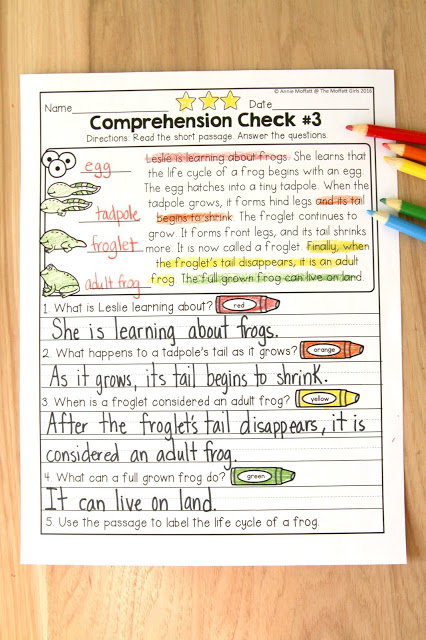 © Annie Moffatt @ The Moffatt Girls 2016
Name Date
Comprehension Check #3
Directions: Read the short passage. Answer the questions.
egg
tadpole
froglet
adult frog
Leslie is learning about frogs. She learns that
the life cycle of a frog begins with an egg.
The egg hatches into a tiny tadpole. When the
tadpole grows, it forms hind legs and its tail
begins to shrink. The froglet continues to
grow. It forms front legs, and its tail shrinks
more. It is now called a froglet. Finally, when
the froglet's tail disappears, it is an adult
frog. The full grown frog can live on land.
1. What is Leslie learning about? red
She is learning about frogs.
2. What happens to a tadpole's tail as it grows? orange
As it grows, its tail begins to shrink.
3. When is a froglet considered an adult frog? yellow
After the froglet's tail disappears, it is
considered an adult frog.
4. What can a full grown frog do? green
It can live on land.
5. Use the passage to label the life cycle of a frog.